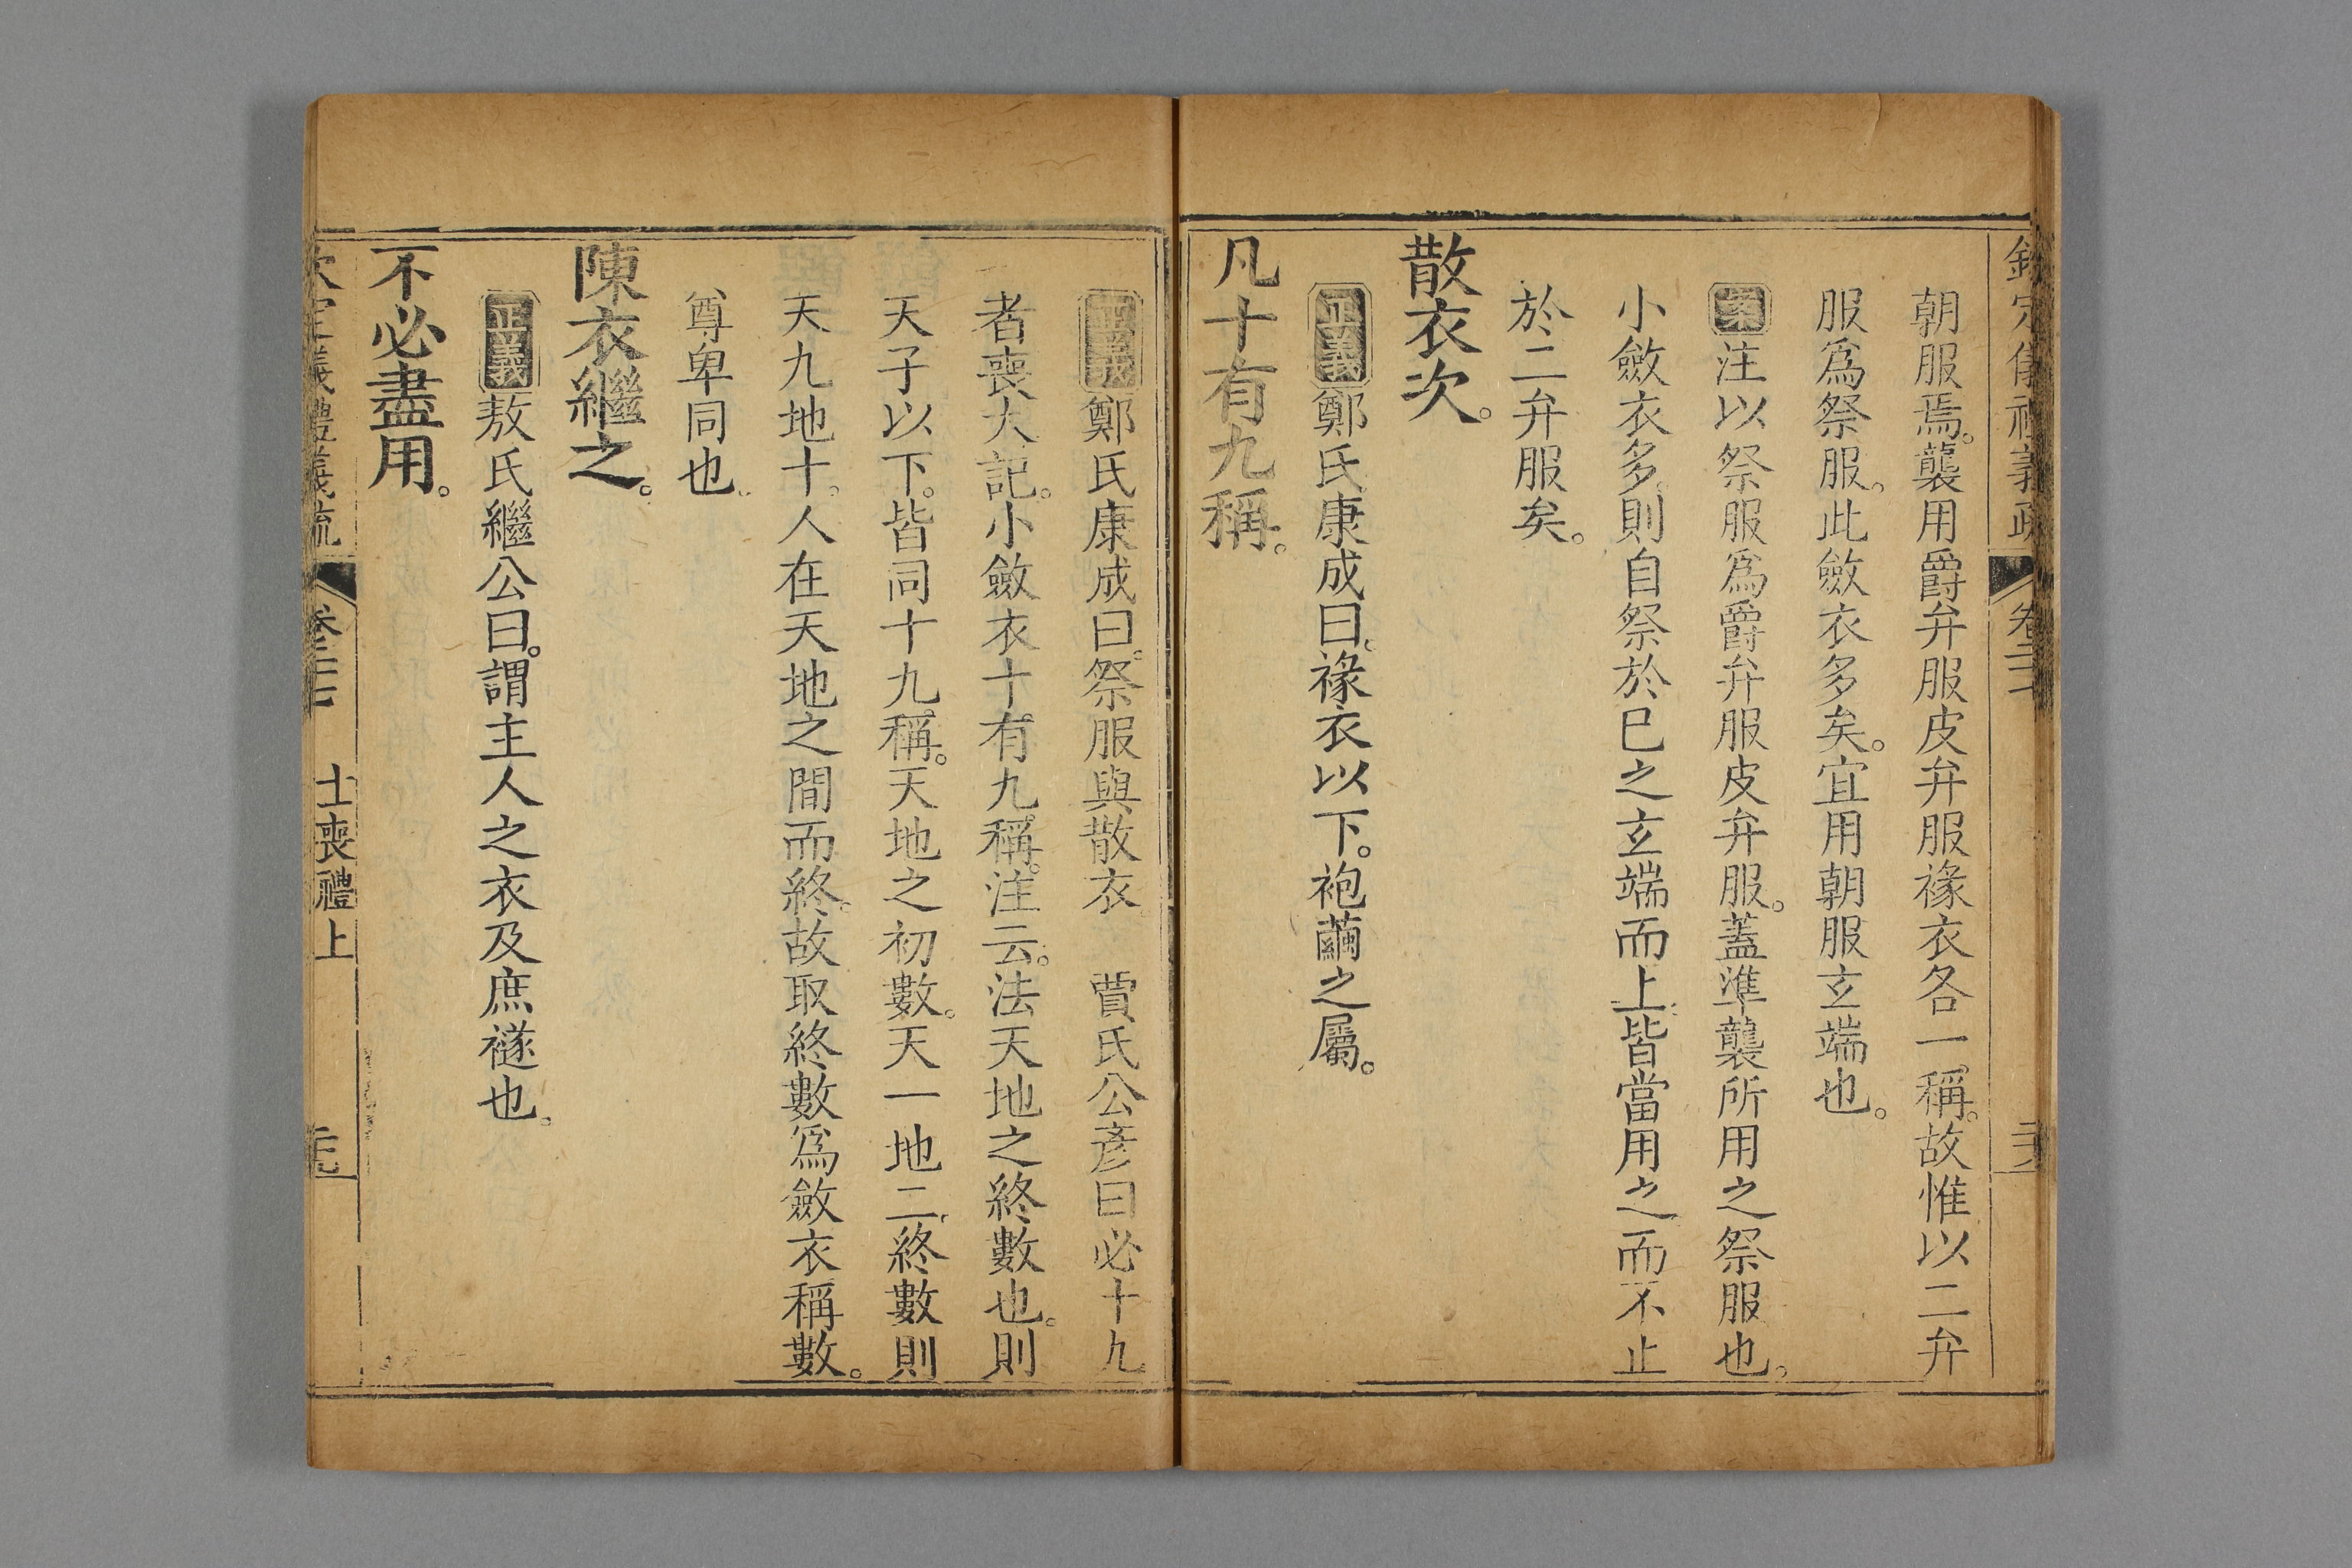 朝服焉。襲用爵弁服皮弁服褖衣各一稱。故惟以二弁
服爲祭服。此斂衣多矣。宜用朝服玄端也。
案注以祭服爲爵弁服皮弁服。蓋準襲所用之祭服也。
小斂衣多。則自祭於已之玄端而上皆當用之而不止
於二弁服矣。
散衣次。
正義鄭氏康成曰。褖衣以下。袍繭之屬。
凡十有九稱。
正義鄭氏康成曰。祭服與散衣 賈氏公彥曰必十九
者喪大記。小斂衣十有九稱。注云。法天地之終數也。則
天子以下。皆同十九稱。天地之初數。天一地二終數則
天九地十。人在天地之間而終。故取終數爲斂衣稱數。
尊卑同也。
陳衣繼之。
正義敖氏繼公曰。謂主人之衣及庶襚也。
不必盡用。
士喪禮上